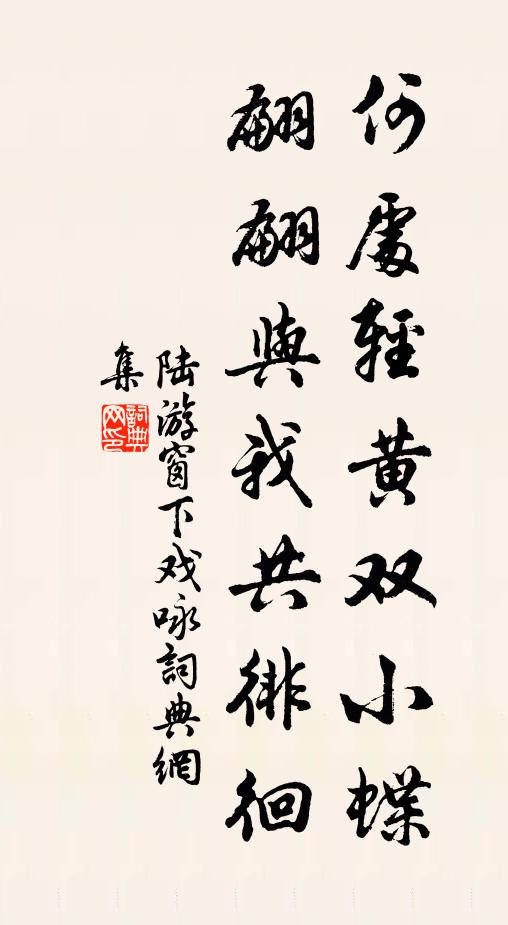 何處輕黄双小蝶
翩翩與我共徘徊
陆游窗下戏咏詞典網
集
詞典
网印